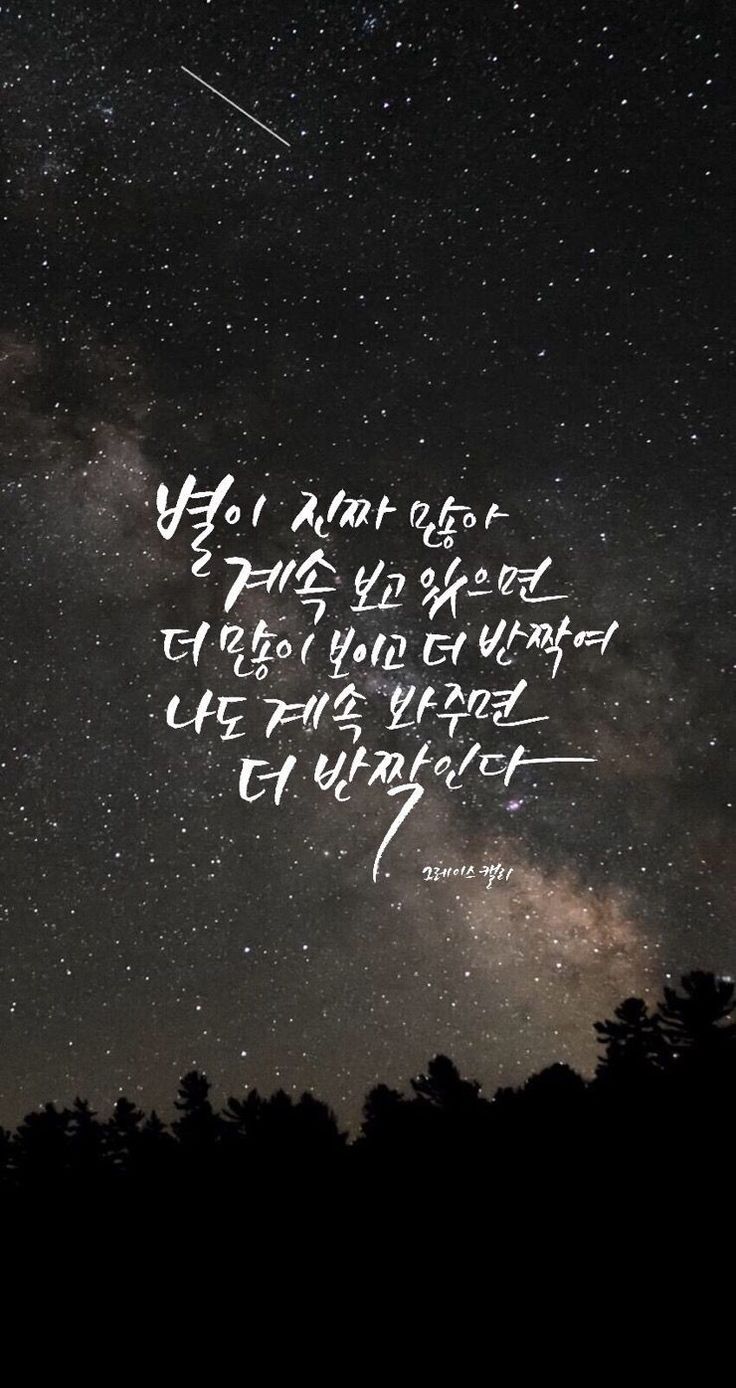 별이 진짜 많아
계속 보고 있으면
더 많이 보이고 더 반짝여
나도 계속 봐주면
더 반짝인다
그레이스 캘리